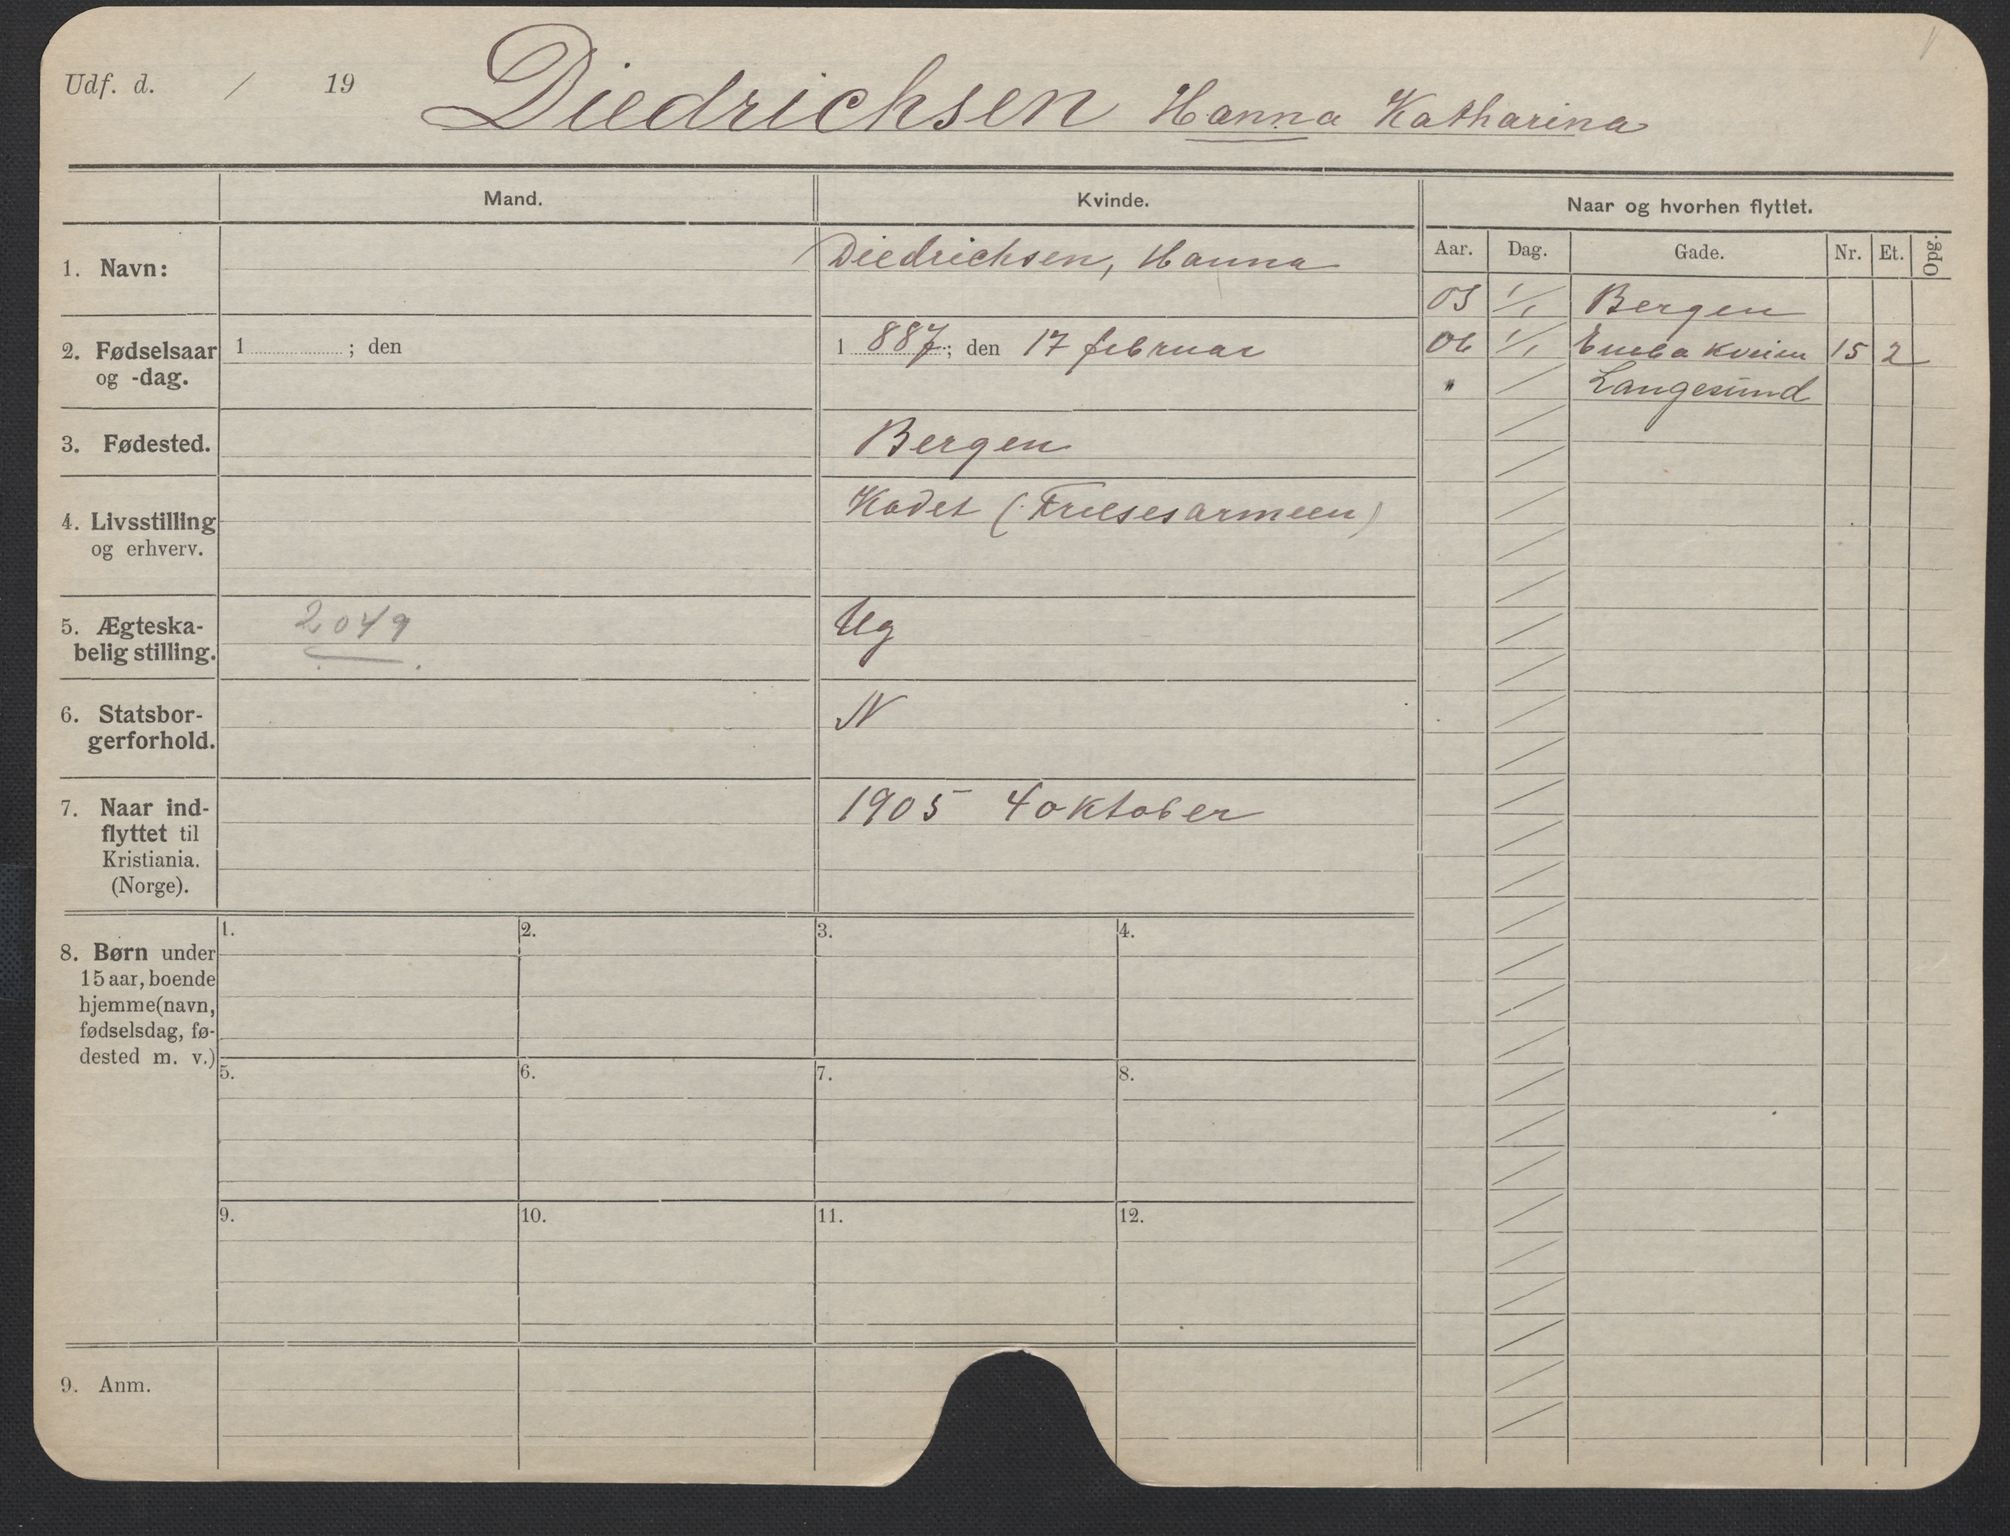 Udf. d. / 19 Diedrichsen Hanna Katharina
Mand. Kvinde. Naar og hvorhen flyttet.
Aar. Dag. Gade. Nr. Et. Opg.
1. Navn: Diedrichsen, Hanna
05 1/1 Bergen
2. Fødselsaar og -dag. 1 ; den 1 887 ; den 17 februar
06 1/1 Kveim 15 2
" / Langesund
3. Fødested. Bergen
4. Livsstilling og erhverv. Kadet (Frelsesarmeen)
5. Ægteska-
belig stilling. 2049 Ug
6. Statsbor-
gerforhold. N
7. Naar ind-
flyttet til
Kristiania.
(Norge). 1905 4 oktober
8. Børn under
15 aar, boende
hjemme (navn,
fødselsdag, fø-
dested m. v.)
1. 2. 3. 4.
5. 6. 7. 8.
9. 10. 11. 12.
9. Anm.